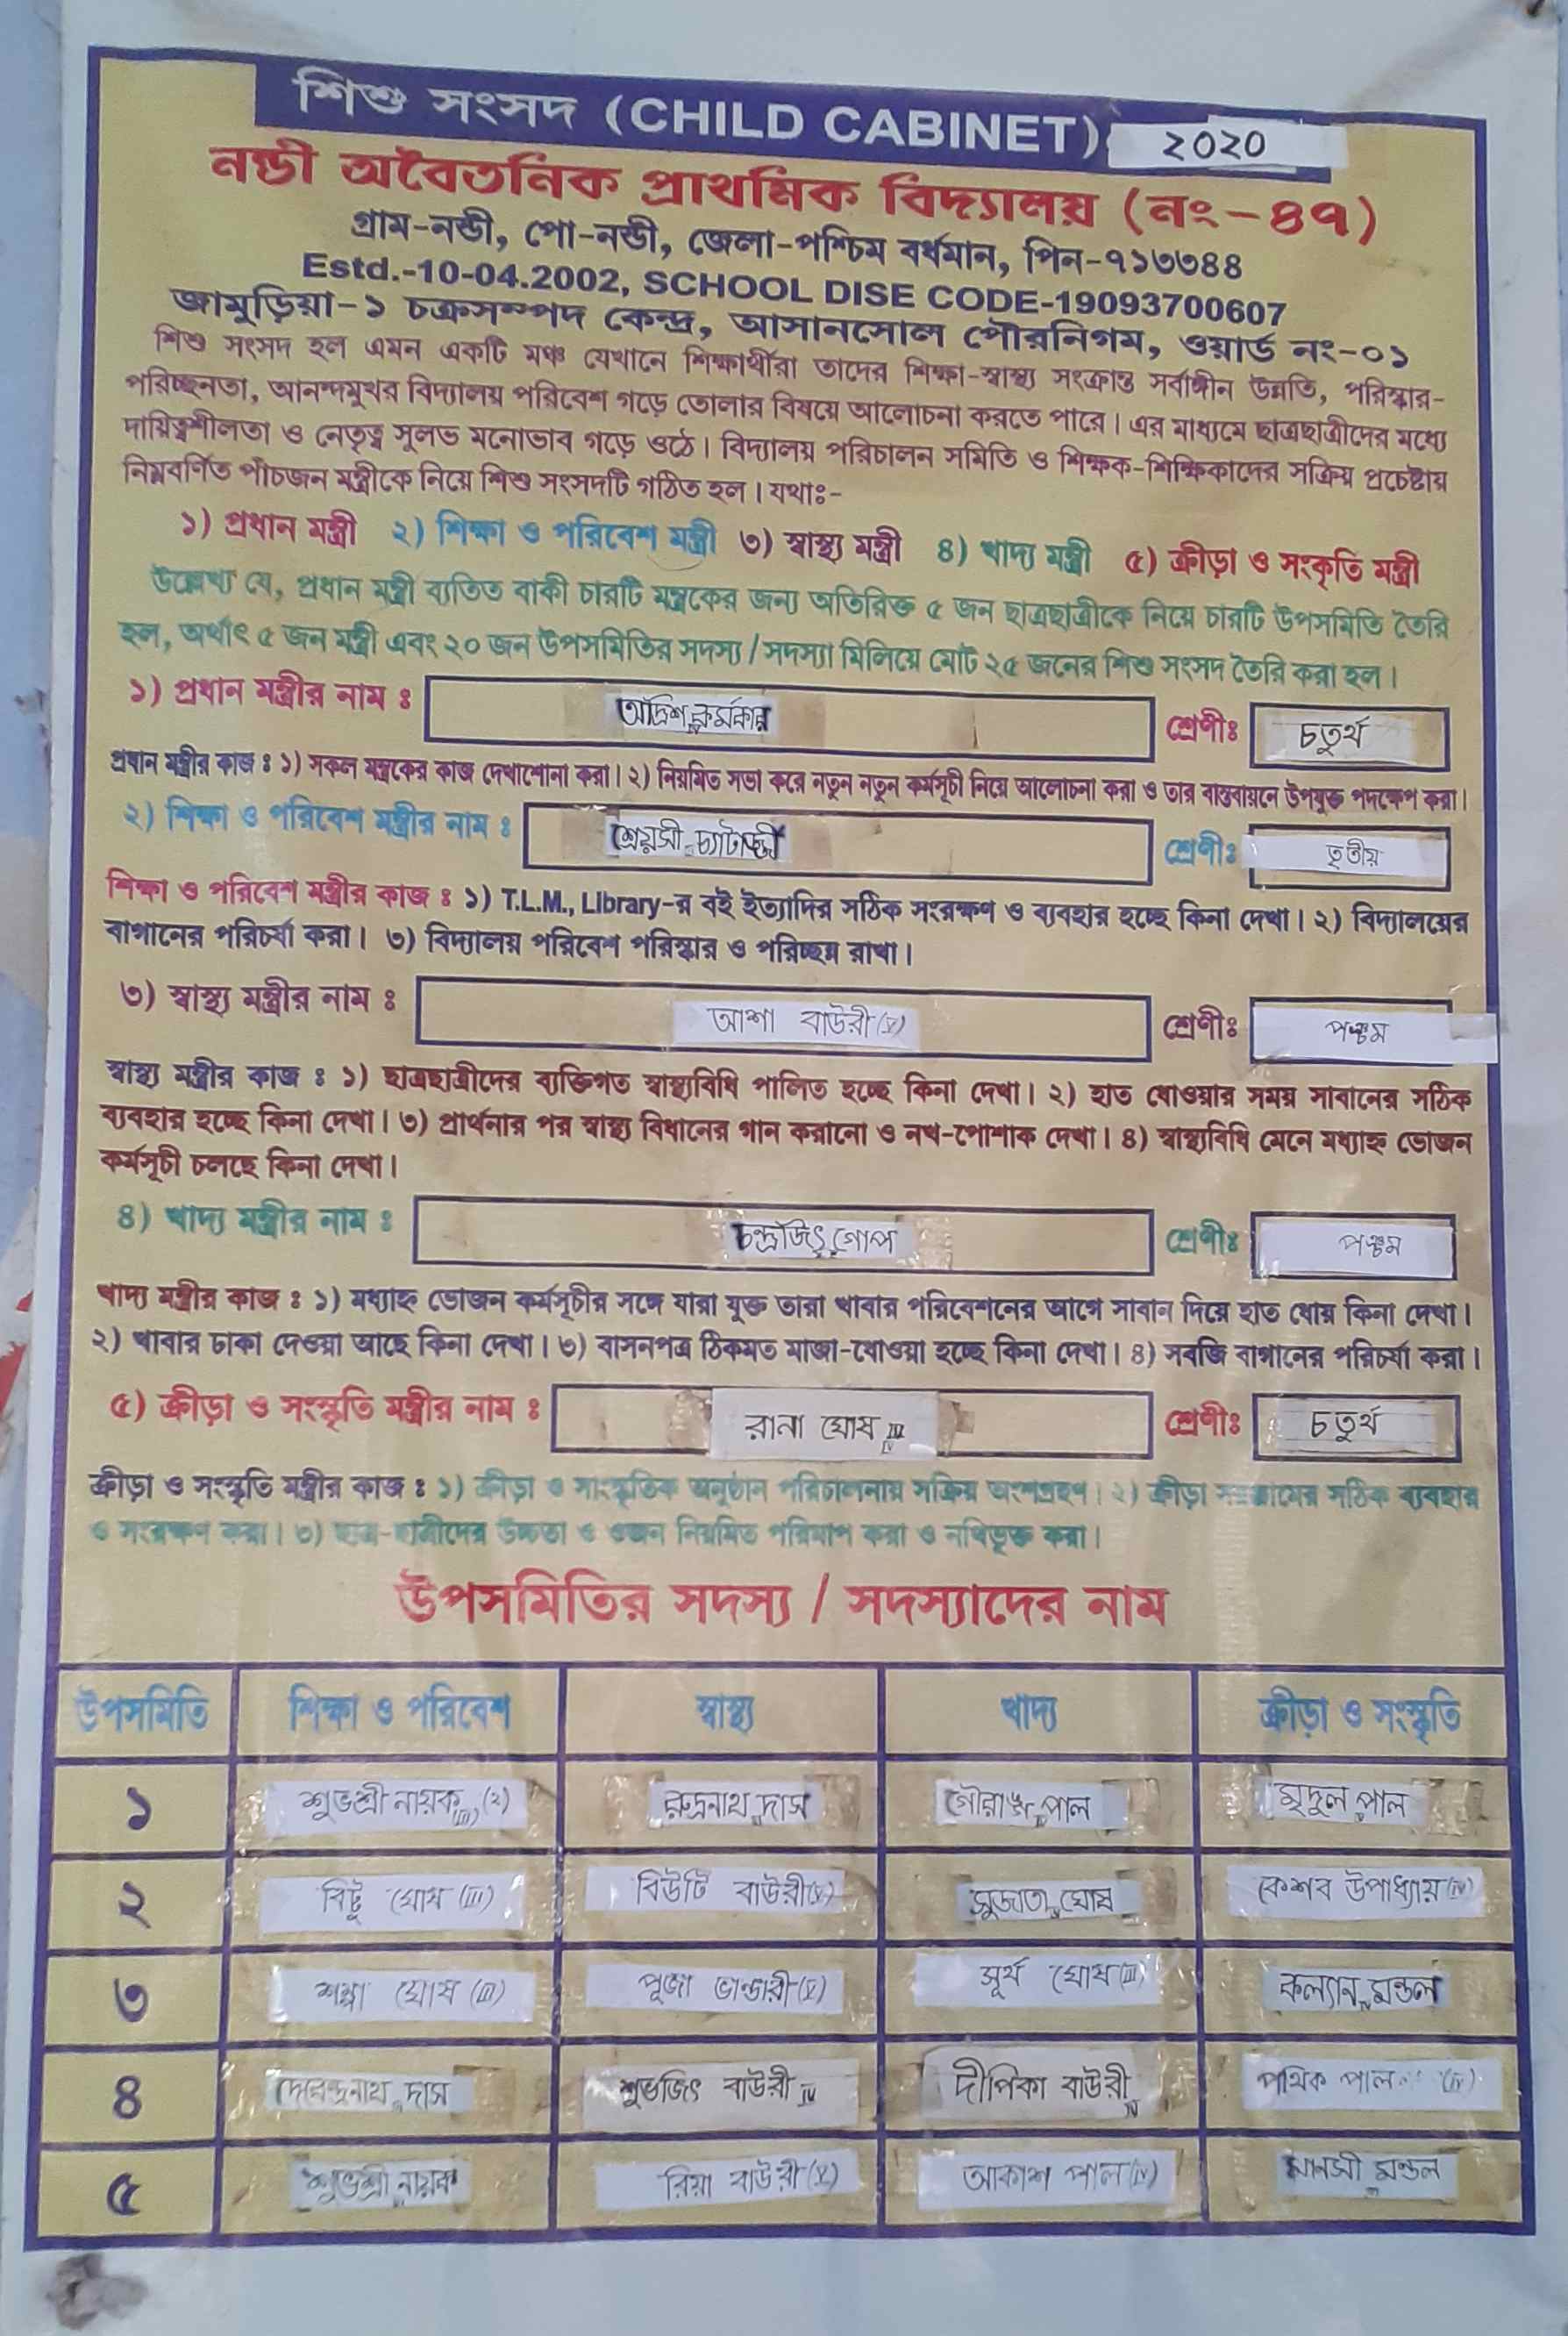 শিশু সংসদ (CHILD CABINET) 2020
নন্ডী অবৈতনিক প্রাথমিক বিদ্যালয় (নং-৪৭)
গ্রাম-নন্ডী, পো-নন্ডী, জেলা-পশ্চিম বর্ধমান, পিন-৭১৩৩৪৪
Estd.-10-04.2002, SCHOOL DISE CODE-19093700607
জামুড়িয়া-১ চক্রসম্পদ কেন্দ্র, আসানসোল পৌরনিগম, ওয়ার্ড নং-০১
শিশু সংসদ হল এমন একটি মঞ্চ যেখানে শিক্ষার্থীরা তাদের শিক্ষা-স্বাস্থ্য সংক্রান্ত সর্বাঙ্গীন উন্নতি, পরিস্কার-
পরিচ্ছনতা, আনন্দমুখর বিদ্যালয় পরিবেশ গড়ে তোলার বিষয়ে আলোচনা করতে পারে। এর মাধ্যমে ছাত্রছাত্রীদের মধ্যে
দায়িত্বশীলতা ও নেতৃত্ব সুলভ মনোভাব গড়ে ওঠে। বিদ্যালয় পরিচালন সমিতি ও শিক্ষক-শিক্ষিকাদের সক্রিয় প্রচেষ্টায়
নিম্নবর্ণিত পাঁচজন মন্ত্রীকে নিয়ে শিশু সংসদটি গঠিত হল। যথাঃ-
১) প্রধান মন্ত্রী ২) শিক্ষা ও পরিবেশ মন্ত্রী ৩) স্বাস্থ্য মন্ত্রী ৪) খাদ্য মন্ত্রী ৫) ক্রীড়া ও সংকৃতি মন্ত্রী
উল্লেখ্য যে, প্রধান মন্ত্রী ব্যতিত বাকী চারটি মন্ত্রকের জন্য অতিরিক্ত ৫ জন ছাত্রছাত্রীকে নিয়ে চারটি উপসমিতি তৈরি
হল, অর্থাৎ ৫ জন মন্ত্রী এবং ২০ জন উপসমিতির সদস্য / সদস্যা মিলিয়ে মোট ২৫ জনের শিশু সংসদ তৈরি করা হল।
১) প্রধান মন্ত্রীর নাম ঃ অদ্রিশ কর্মকার শ্রেণীঃ চতুর্থ
প্রধান মন্ত্রীর কাজ ঃ ১) সকল মন্ত্রকের কাজ দেখাশোনা করা। ২) নিয়মিত সভা করে নতুন নতুন কর্মসূচী নিয়ে আলোচনা করা ও তার বাস্তবায়নে উপযুক্ত পদক্ষেপ করা।
২) শিক্ষা ও পরিবেশ মন্ত্রীর নাম ঃ শ্রেয়সী চ্যাটার্জ্জী শ্রেণীঃ তৃতীয়
শিক্ষা ও পরিবেশ মন্ত্রীর কাজ ঃ ১) T.L.M., Library-র বই ইত্যাদির সঠিক সংরক্ষণ ও ব্যবহার হচ্ছে কিনা দেখা। ২) বিদ্যালয়ের
বাগানের পরিচর্যা করা। ৩) বিদ্যালয় পরিবেশ পরিস্কার ও পরিচ্ছন্ন রাখা।
৩) স্বাস্থ্য মন্ত্রীর নাম ঃ আশা বাউরী (V) শ্রেণীঃ পঞ্চম
স্বাস্থ্য মন্ত্রীর কাজ ঃ ১) ছাত্রছাত্রীদের ব্যক্তিগত স্বাস্থ্যবিধি পালিত হচ্ছে কিনা দেখা। ২) হাত ধোওয়ার সময় সাবানের সঠিক
ব্যবহার হচ্ছে কিনা দেখা। ৩) প্রার্থনার পর স্বাস্থ্য বিধানের গান করানো ও নখ-পোশাক দেখা। ৪) স্বাস্থ্যবিধি মেনে মধ্যাহ্ন ভোজন
কর্মসূচী চলছে কিনা দেখা।
৪) খাদ্য মন্ত্রীর নাম ঃ চন্দ্রজিৎ গোপ শ্রেণীঃ পঞ্চম
খাদ্য মন্ত্রীর কাজ ঃ ১) মধ্যাহ্ন ভোজন কর্মসূচীর সঙ্গে যারা যুক্ত তারা খাবার পরিবেশনের আগে সাবান দিয়ে হাত ধোয় কিনা দেখা।
২) খাবার ঢাকা দেওয়া আছে কিনা দেখা। ৩) বাসনপত্র ঠিকমত মাজা-ধোওয়া হচ্ছে কিনা দেখা। ৪) সবজি বাগানের পরিচর্যা করা।
৫) ক্রীড়া ও সংস্কৃতি মন্ত্রীর নাম ঃ রানা ঘোষ IV শ্রেণীঃ চতুর্থ
ক্রীড়া ও সংস্কৃতি মন্ত্রীর কাজ ঃ ১) ক্রীড়া ও সাংস্কৃতিক অনুষ্ঠান পরিচালনায় সক্রিয় অংশগ্রহণ। ২) ক্রীড়া সরঞ্জামের সঠিক ব্যবহার
ও সংরক্ষণ করা। ৩) ছাত্র-ছাত্রীদের উচ্চতা ও ওজন নিয়মিত পরিমাপ করা ও নথিভুক্ত করা।
উপসমিতির সদস্য / সদস্যাদের নাম
উপসমিতি শিক্ষা ও পরিবেশ স্বাস্থ্য খাদ্য ক্রীড়া ও সংস্কৃতি
১ শুভশ্রী নায়ক (III) (২) রুদ্রনাথ দাস গৌরাঙ্গ পাল মৃদুল পাল
২ বিট্টু ঘোষ (III) বিউটি বাউরী (V) সুজাতা ঘোষ কেশব উপাধ্যায় (IV)
৩ শম্পা ঘোষ (III) পূজা ভান্ডারী (V) সূর্য ঘোষ (III) কল্যান মন্ডল
৪ দেবেন্দ্রনাথ দাস শুভজিৎ বাউরী IV দীপিকা বাউরী IV পথিক পাল (IV)
৫ শুভশ্রী নায়ক রিয়া বাউরী (V) আকাশ পাল (IV) মানসী মন্ডল